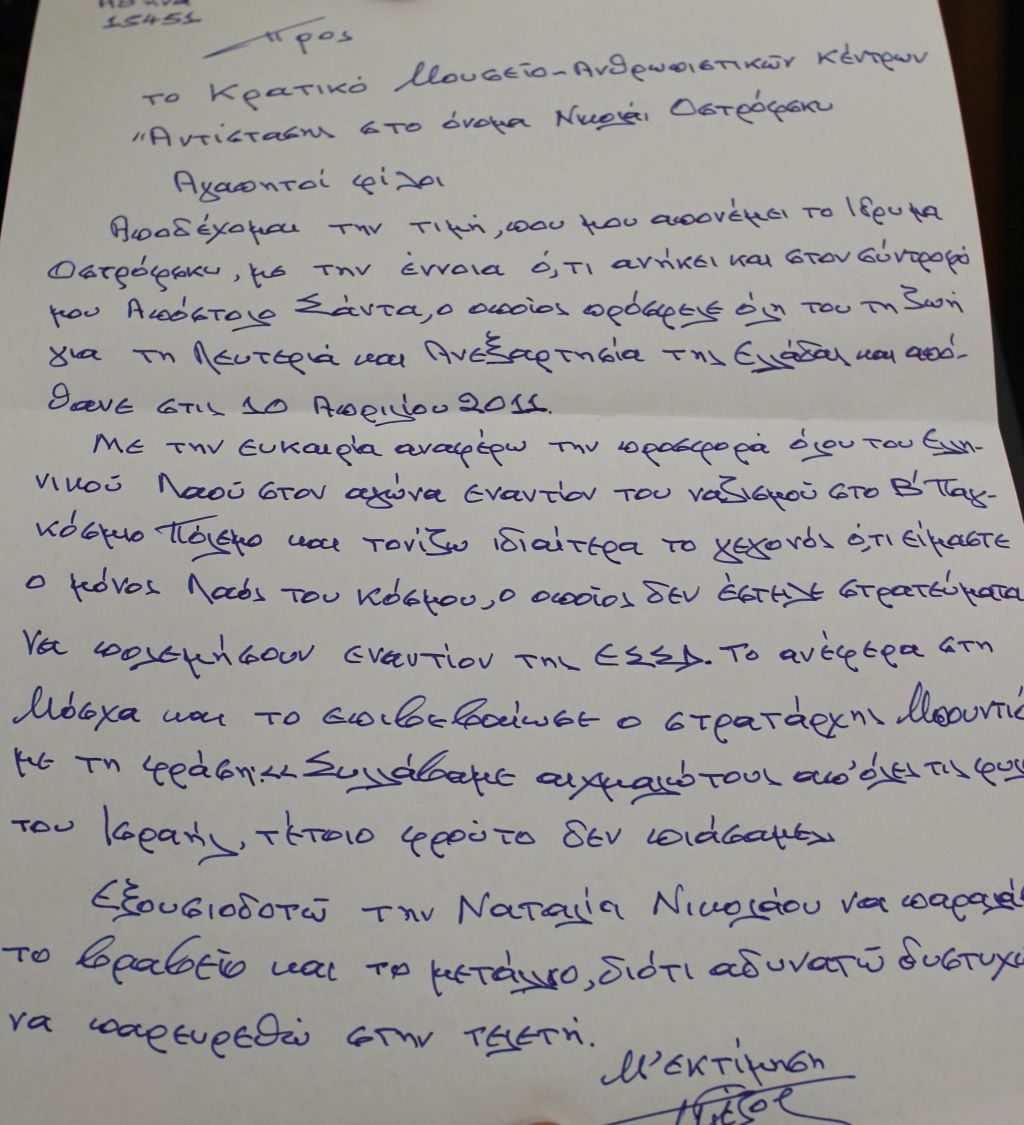 Αθήνα
15451
Προς
το Κρατικό Μουσείο-Ανθρωπιστικών κέντρων
"Αντίστασης στο όνομα Νικολάι Οστρόφσκυ
Αγαπητοί φίλοι
Αποδέχομαι την τιμή, που μου απονέμει το Ιδρυμα
Οστρόφσκυ, με την έννοια ό,τι ανήκει και στον σύντροφό
μου Απόστολο Σάντα, ο οποίος πρόσφερε όλη του τη ζωή
για τη Λευτεριά και Ανεξαρτησία της Ελλάδας και από-
θανε στις 10 Απριλίου 2011.
Με την ευκαιρία αναφέρω την προσφορά όλου του Ελλη-
νικού Λαού στον αγώνα εναντίον του ναζισμού στο Β' Παγ-
κόσμιο Πόλεμο και τονίζω ιδιαίτερα το γεγονός ό,τι είμαστε
ο μόνος Λαός του κόσμου, ο οποίος δεν έστειλε στρατεύματα
να πολεμήσουν εναντίον της ΕΣΣΔ. Το ανέφερα στη
Μόσχα και το επιβεβαίωσε ο στρατάρχης Μπουντιό
με τη φράση: << Συλλάβαμε αιχμαλώτους απ' όλες τις φυλ
του Ισραήλ, τέτοιο φρούτο δεν πιάσαμε>>
Εξουσιοδοτώ την Ναταλία Νικολάου να παραλάβ
το βραβείο και το μετάλλιο, διότι αδυνατώ δυστυχώ
να παρευρεθώ στην τελετή.
Μ' εκτίμηση